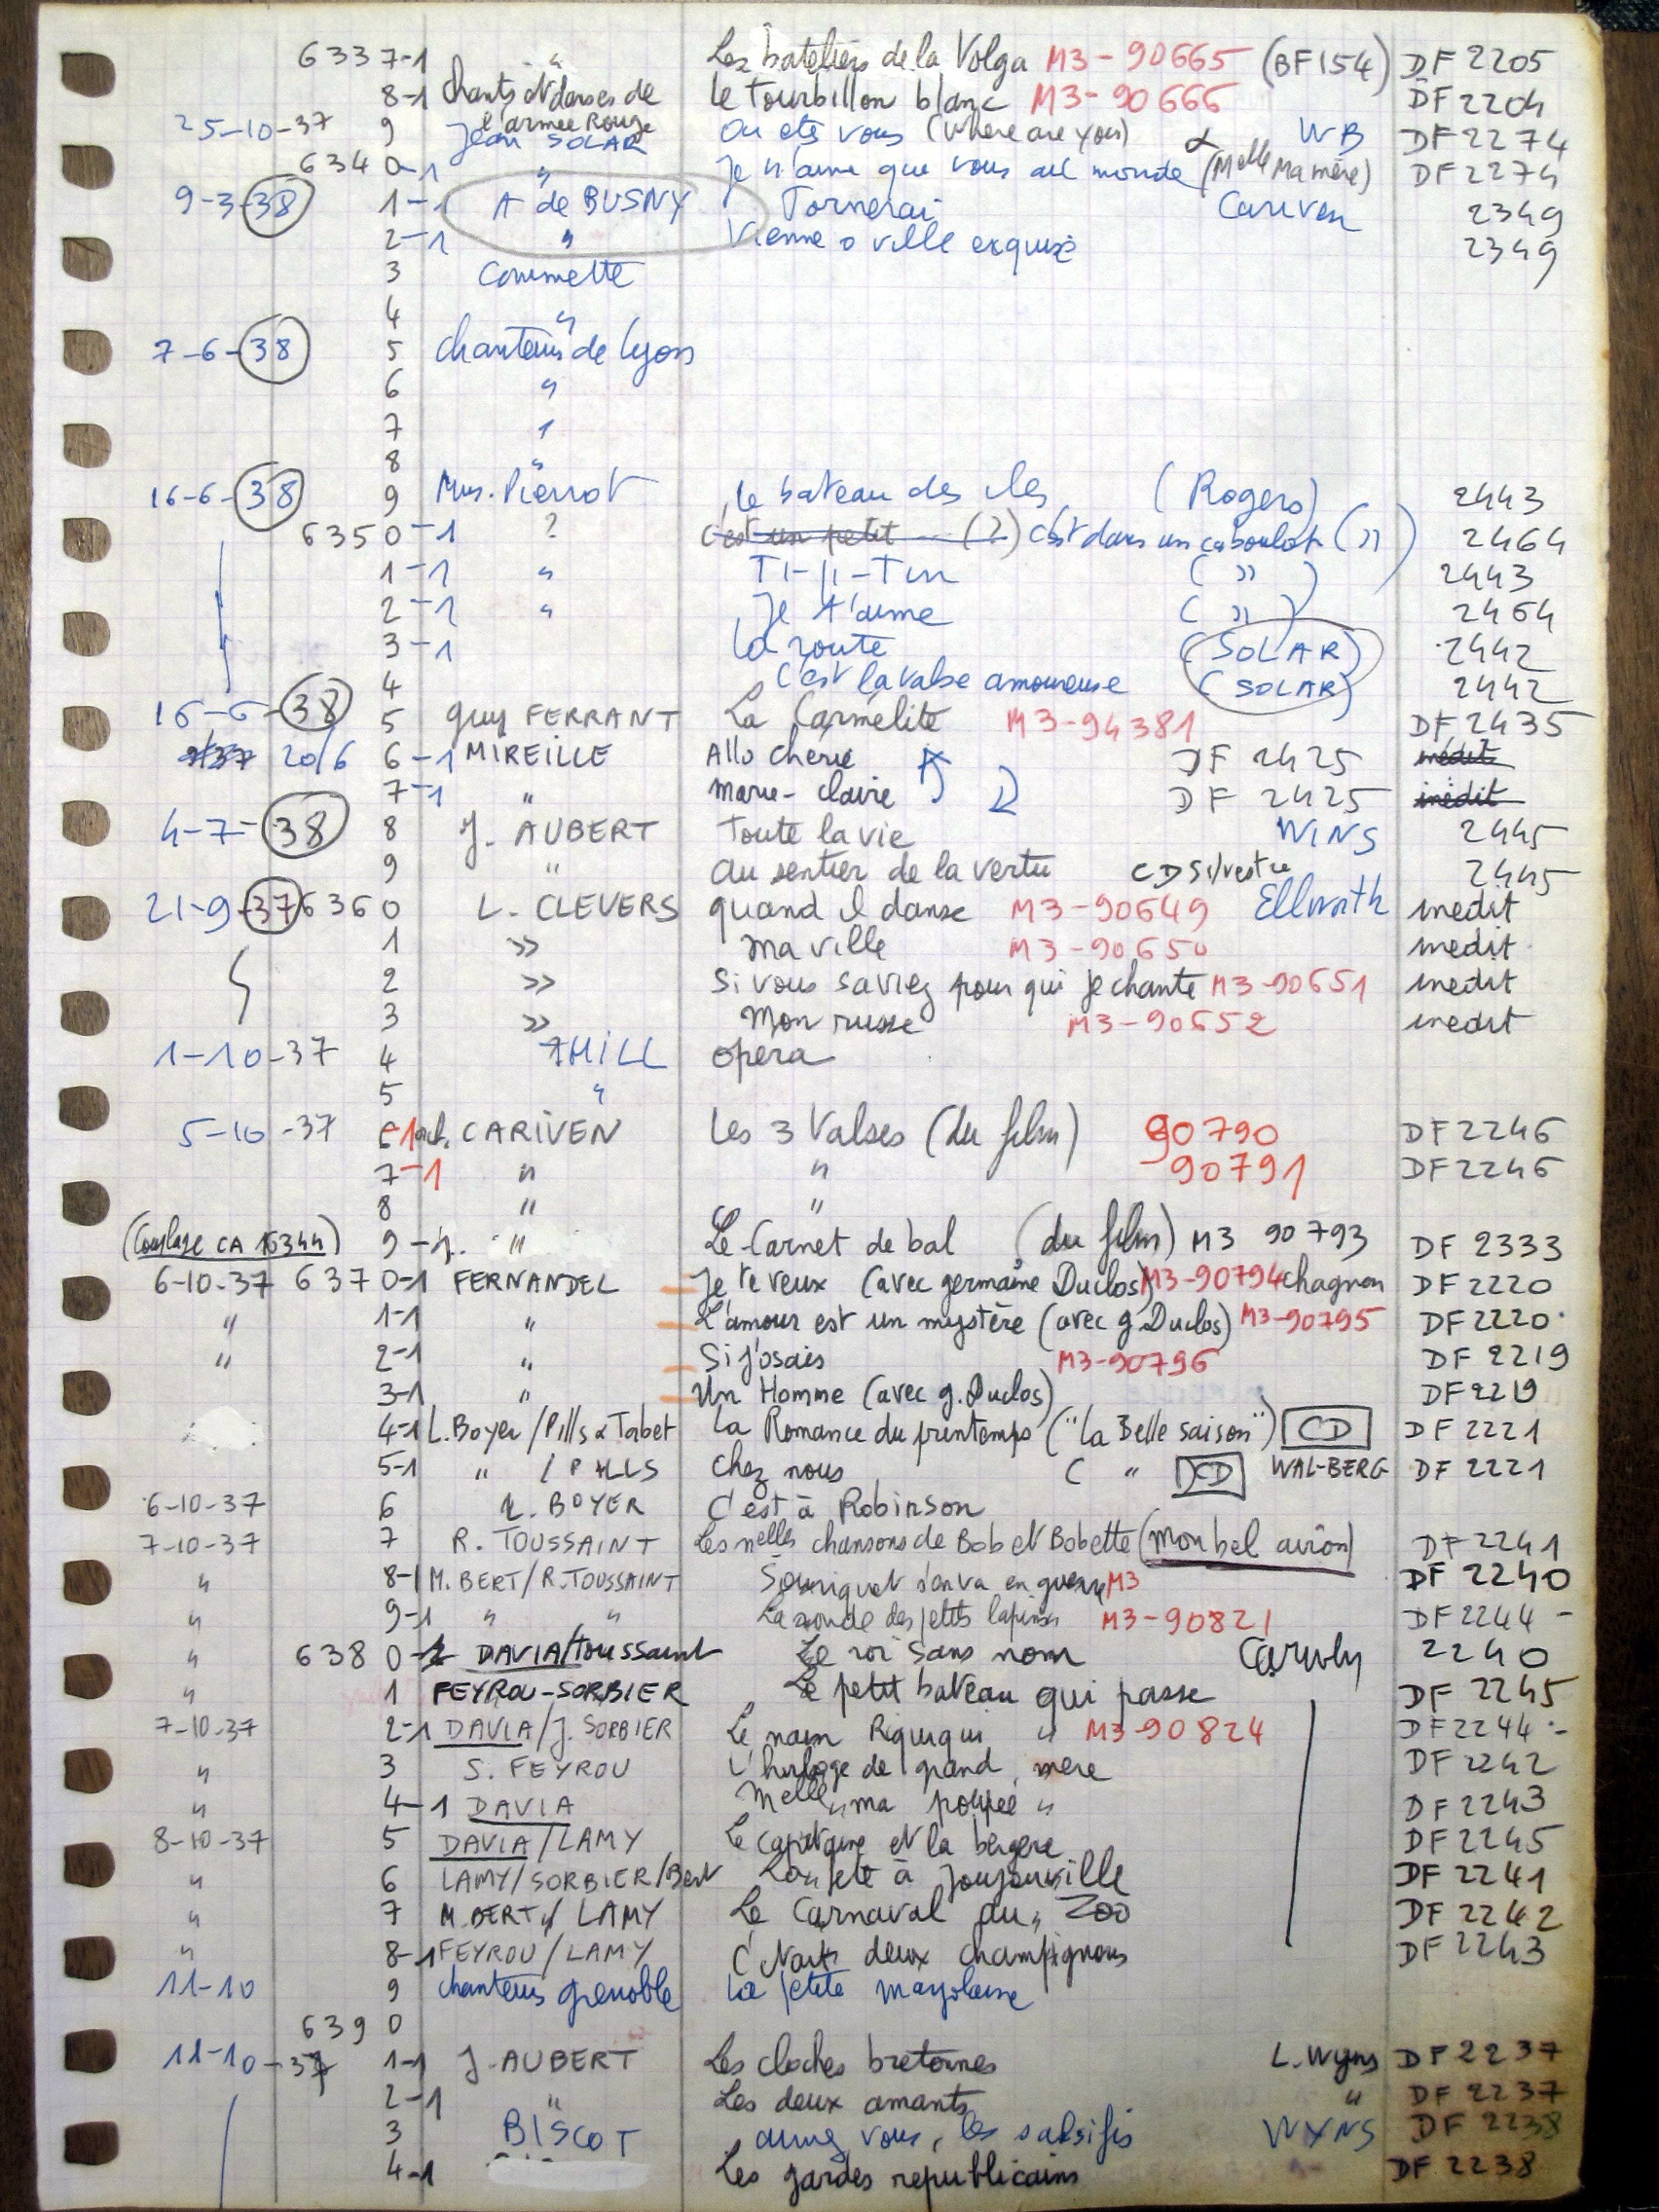 6337-1 " Les bateliers de la Volga M3-90665 (BF154) DF 2205
8-1 Chants et danses de l'armée Rouge Le Tourbillon blanc M3-90666 DF 2204
25-10-37 9 Jean SOLAR Ou ete vous (Where are you) WB DF 2274
6340-1 " Je n'aime que vous au monde (Melle Ma mère) DF 2274
9-3-38 1-1 A de BUSNY Tornerai Cariven 2349
2-1 " Vienne o ville exquise 2349
3 Commette
4 "
7-6-38 5 chanteurs de Lyon
6 "
7 "
8 "
16-6-38 9 Mus. Pierrot Le bateau des iles (Rogers) 2443
6350-1 ? c'est un petit --- (?) c'est dans un caboulot (") 2464
1-1 " Ti-pi-Tin (") 2443
2-1 " Je t'aime (") 2464
3-1 La route (SOLAR) 2442
4 C'est la valse amoureuse (SOLAR) 2442
16-6-38 5 guy FERRANT La Carmélite M3-94381 DF 2435
20/6 6-1 MIREILLE Allo cherie DF 2425 inédit
7-1 " Marie-claire DF 2425 inédit
4-7-38 8 J. AUBERT Toute la vie WINS 2445
9 " au sentier de la vertu CD Silvestre 2445
21-9-37 6360 L. CLEVERS quand il danse M3-90649 Ellworth inedit
1 » ma ville M3-90650 inedit
2 » Si vous saviez pour qui je chante M3-90651 inedit
3 » Mon russe M3-90652 inedit
1-10-37 4 THILL opera
5 "
5-10-37 6-1 orch. CARIVEN Les 3 Valses (du film) 90790 DF 2246
7-1 " " 90791 DF 2246
8 " "
(Couplage CA 16344) 9 " Le Carnet de bal (du film) M3 90793 DF 2333
6-10-37 6370-1 FERNANDEL Je te veux (avec germaine Duclos) M3-90794 chagnon DF 2220
" 1-1 " L'amour est un mystère (avec g. Duclos) M3-90795 DF 2220
" 2-1 " Si j'osais M3-90796 DF 2219
3-1 " Un Homme (avec g. Duclos) DF 2219
4-1 L. Boyer/Pills & Tabet La Romance du printemps ("La Belle saison") CD DF 2221
5-1 " / PILLS Chez nous ( " ) CD WAL-BERG DF 2221
6-10-37 6 L. BOYER C'est à Robinson
7-10-37 7 R. TOUSSAINT Les nelles chansons de Bob et Bobette (mon bel avion) DF 2241
" 8-1 M. BERT/R. TOUSSAINT Souriquet s'en va en guerre M3 DF 2240
" 9-1 " " La ronde des petits lapins M3-90821 DF 2244 -
" 6380 DAVIA/Toussaint Le roi sans nom 2240
" 1 FEYROU-SORBIER Le petit bateau qui passe DF 2245
7-10-37 2-1 DAVIA/J. SORBIER Le nain Riquiqui " M3-90824 DF 2244 -
" 3 S. FEYROU L'horloge de grand mere DF 2242
" 4-1 DAVIA Melle ma poupée " DF 2243
8-10-37 5 DAVIA/LAMY Le capitaine et la bergere DF 2245
" 6 LAMY/SORBIER/Bert La fete à Joujouville DF 2241
" 7 M. BERT / LAMY Le Carnaval au Zoo DF 2242
" 8-1 FEYROU/LAMY C'était deux champignons DF 2243
11-10 9 chanteurs grenoble La petite marjolaine
6390
11-10-37 1-1 J. AUBERT Les cloches bretonnes L. Wyns DF 2237
2-1 " Les deux amants " DF 2237
3 BISCOT aimez vous, les salsifis WYNS DF 2238
4-1 Les gardes republicains DF 2238